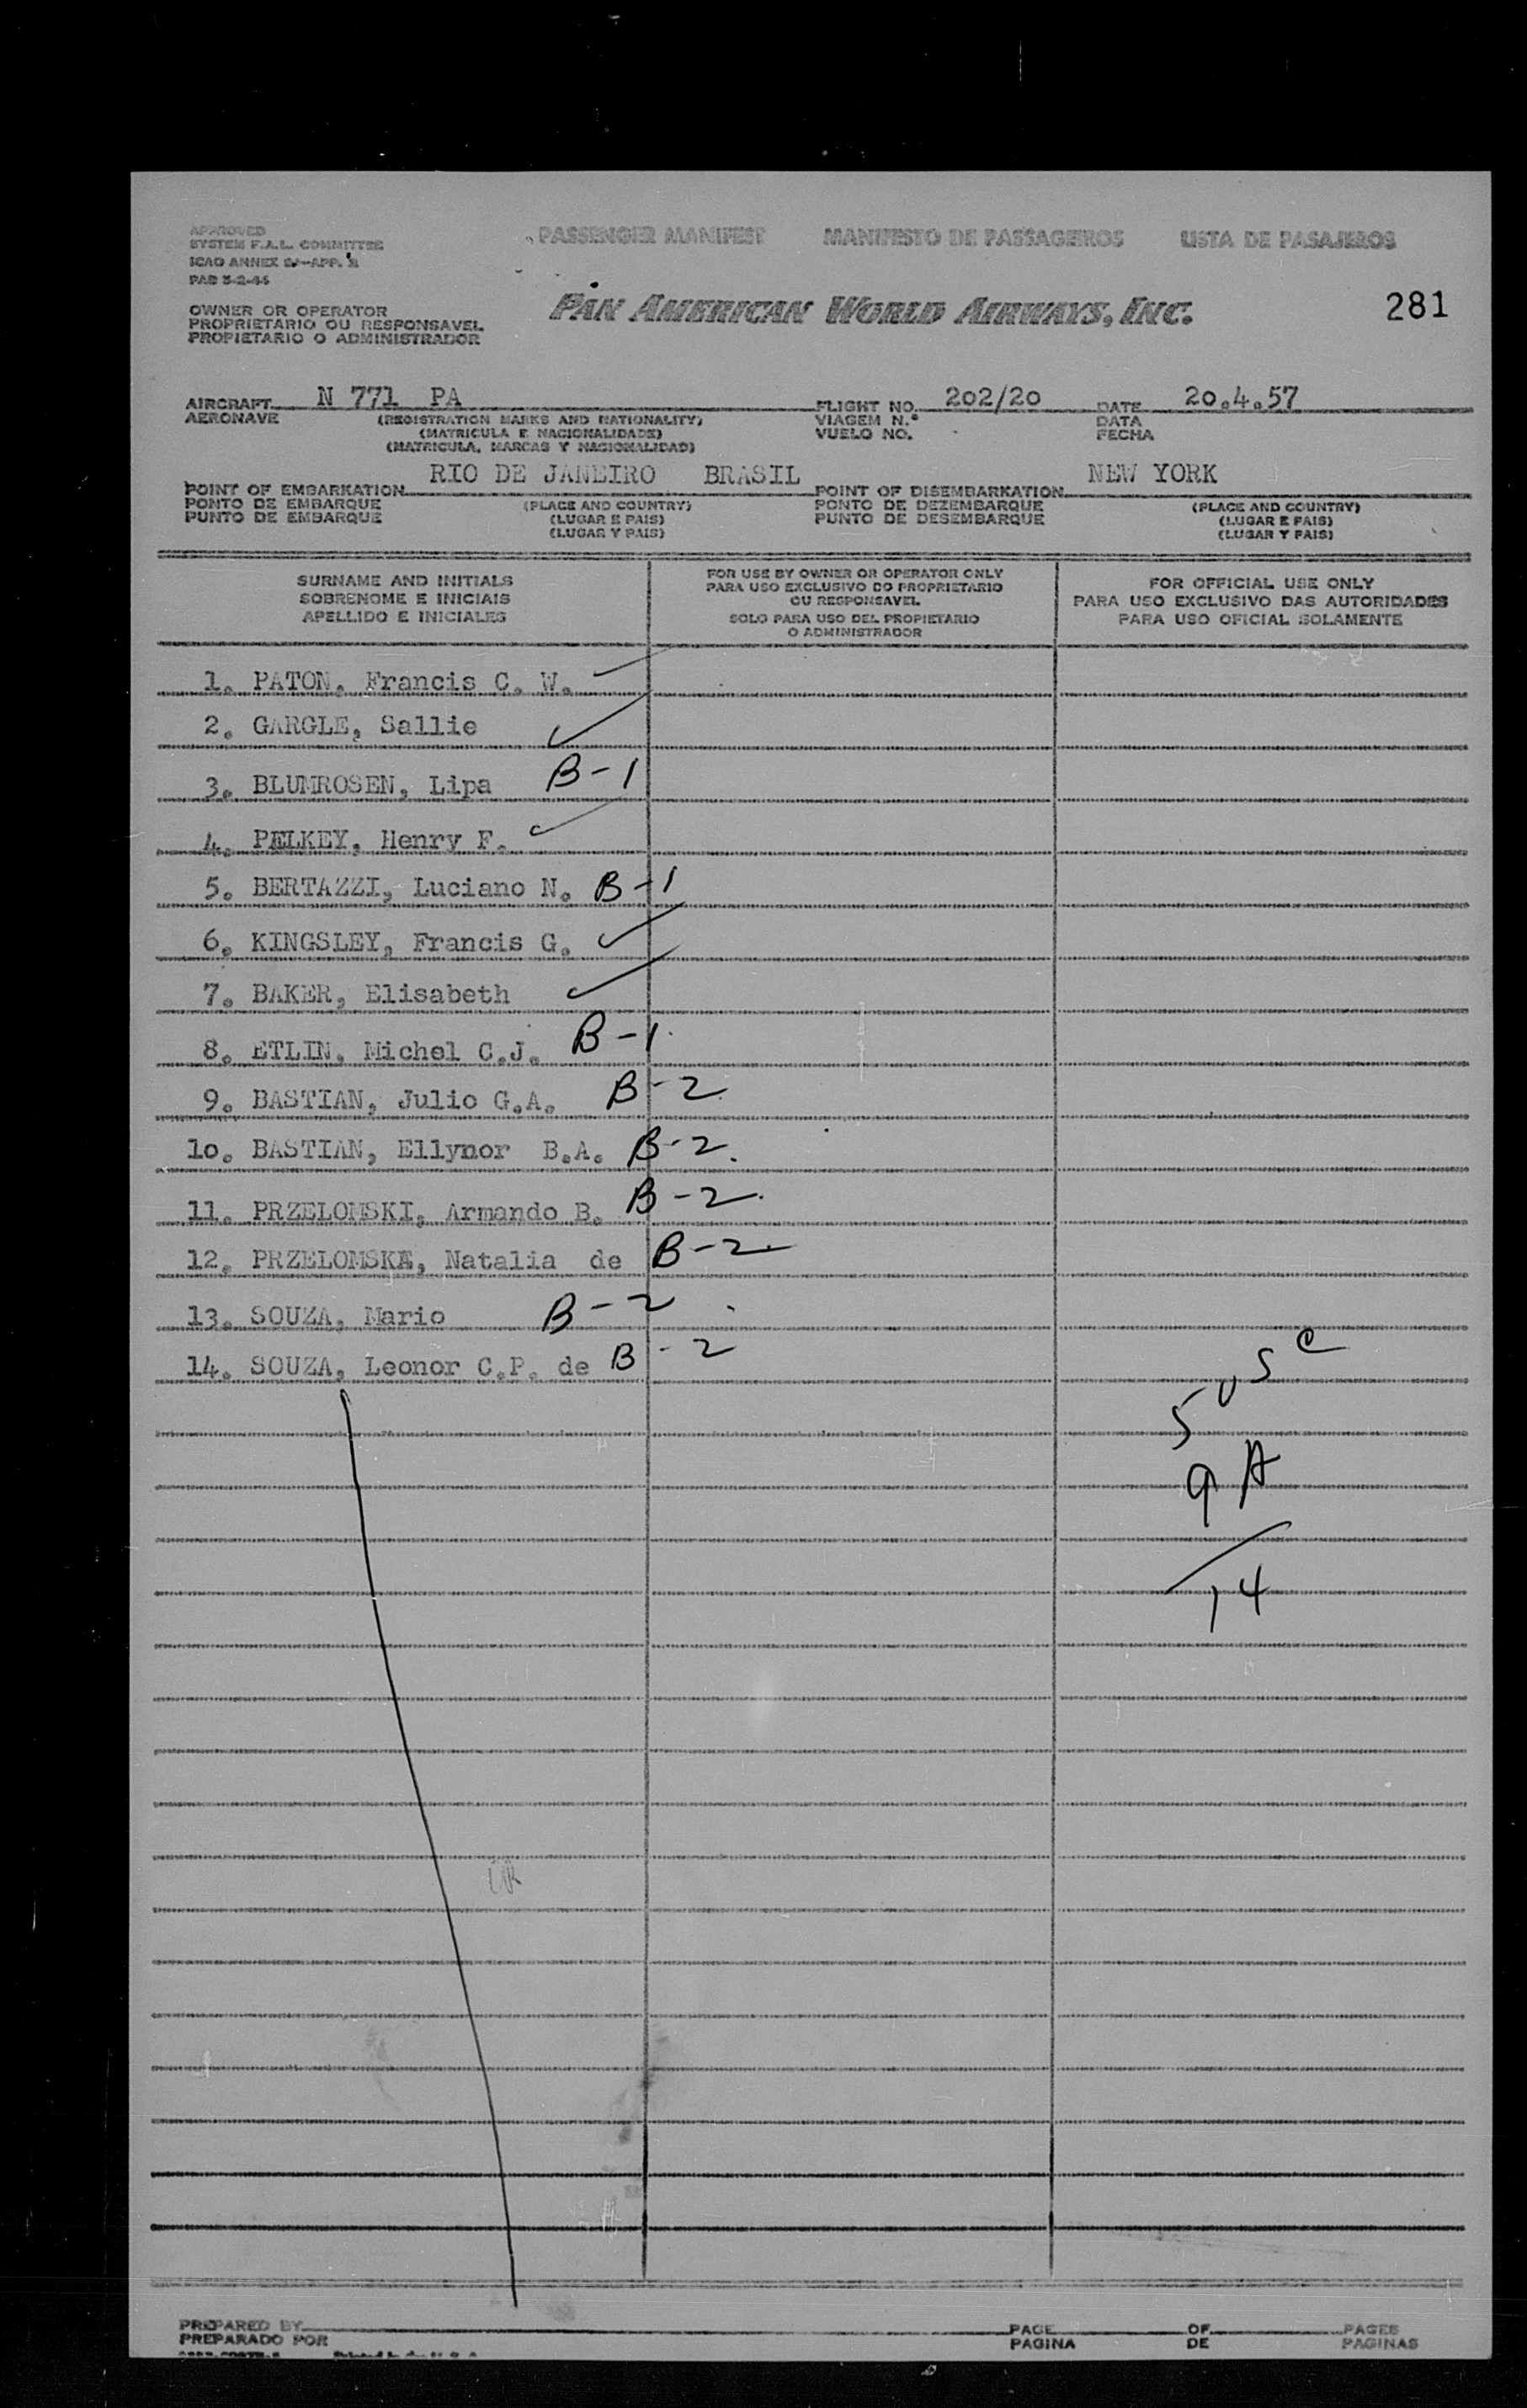 APPROVED
SYSTEM F.A.L. COMMITTEE
ICAO ANNEX 9—APP. 2
PAB 3-2-46
PASSENGER MANIFEST MANIFESTO DE PASSAGEIROS LISTA DE PASAJEROS
OWNER OR OPERATOR
PROPRIETARIO OU RESPONSAVEL
PROPIETARIO O ADMINISTRADOR
PAN AMERICAN WORLD AIRWAYS, INC.
281
AIRCRAFT N 771 PA FLIGHT NO. 202/20 DATE 20.4.57
AERONAVE (REGISTRATION MARKS AND NATIONALITY) VIAGEM N.º DATA
(MATRICULA E NACIONALIDADE) VUELO NO. FECHA
(MATRICULA, MARCAS Y NACIONALIDAD)
POINT OF EMBARKATION RIO DE JANEIRO BRASIL POINT OF DISEMBARKATION NEW YORK
PONTO DE EMBARQUE (PLACE AND COUNTRY) PONTO DE DEZEMBARQUE (PLACE AND COUNTRY)
PUNTO DE EMBARQUE (LUGAR E PAIS) PUNTO DE DESEMBARQUE (LUGAR E PAIS)
(LUGAR Y PAIS) (LUGAR Y PAIS)
SURNAME AND INITIALS
SOBRENOME E INICIAIS
APELLIDO E INICIALES
FOR USE BY OWNER OR OPERATOR ONLY
PARA USO EXCLUSIVO DO PROPRIETARIO
OU RESPONSAVEL
SOLO PARA USO DEL PROPIETARIO
O ADMINISTRADOR
FOR OFFICIAL USE ONLY
PARA USO EXCLUSIVO DAS AUTORIDADES
PARA USO OFICIAL SOLAMENTE
1. PATON, Francis C. W.
2. GARGLE, Sallie
3. BLUMROSEN, Lipa B-1
4. PELKEY, Henry F.
5. BERTAZZI, Luciano N. B-1
6. KINGSLEY, Francis G.
7. BAKER, Elisabeth
8. ETLIN, Michel C.J. B-1
9. BASTIAN, Julio G.A. B-2
10. BASTIAN, Ellynor B.A. B-2
11. PRZELOMSKI, Armando B. B-2
12. PRZELOMSKA, Natalia de B-2
13. SOUZA, Mario B-2
14. SOUZA, Leonor C.P. de B-2
5 USC
9 A
14
PREPARED BY PAGE OF PAGES
PREPARADO POR PAGINA DE PAGINAS